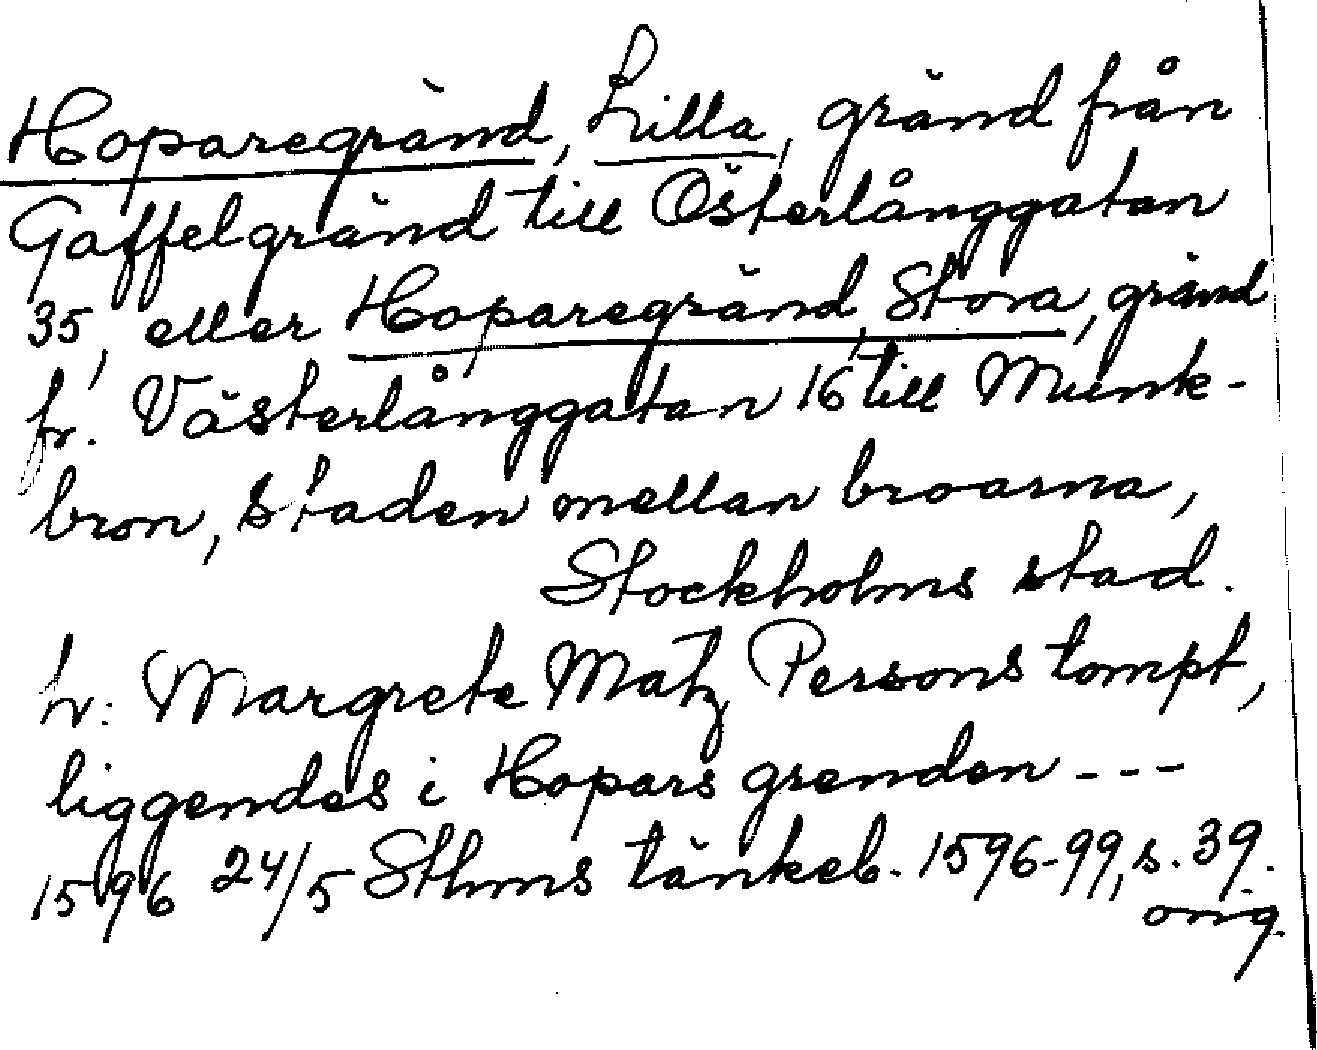 Hoparegränd, Lilla, gränd från
Gaffelgränd till Österlånggatan
35, eller Hoparegränd, Stora, gränd
fr. Västerlånggatan 16 till Munk-
bron, Staden mellan broarna,
Stockholms stad.
hr. Margrete Matz Persons tompt,
liggendes i Hopars grenden ---
1596 24/5 Sthms tänkeb. 1596-99, s. 39.
orig.